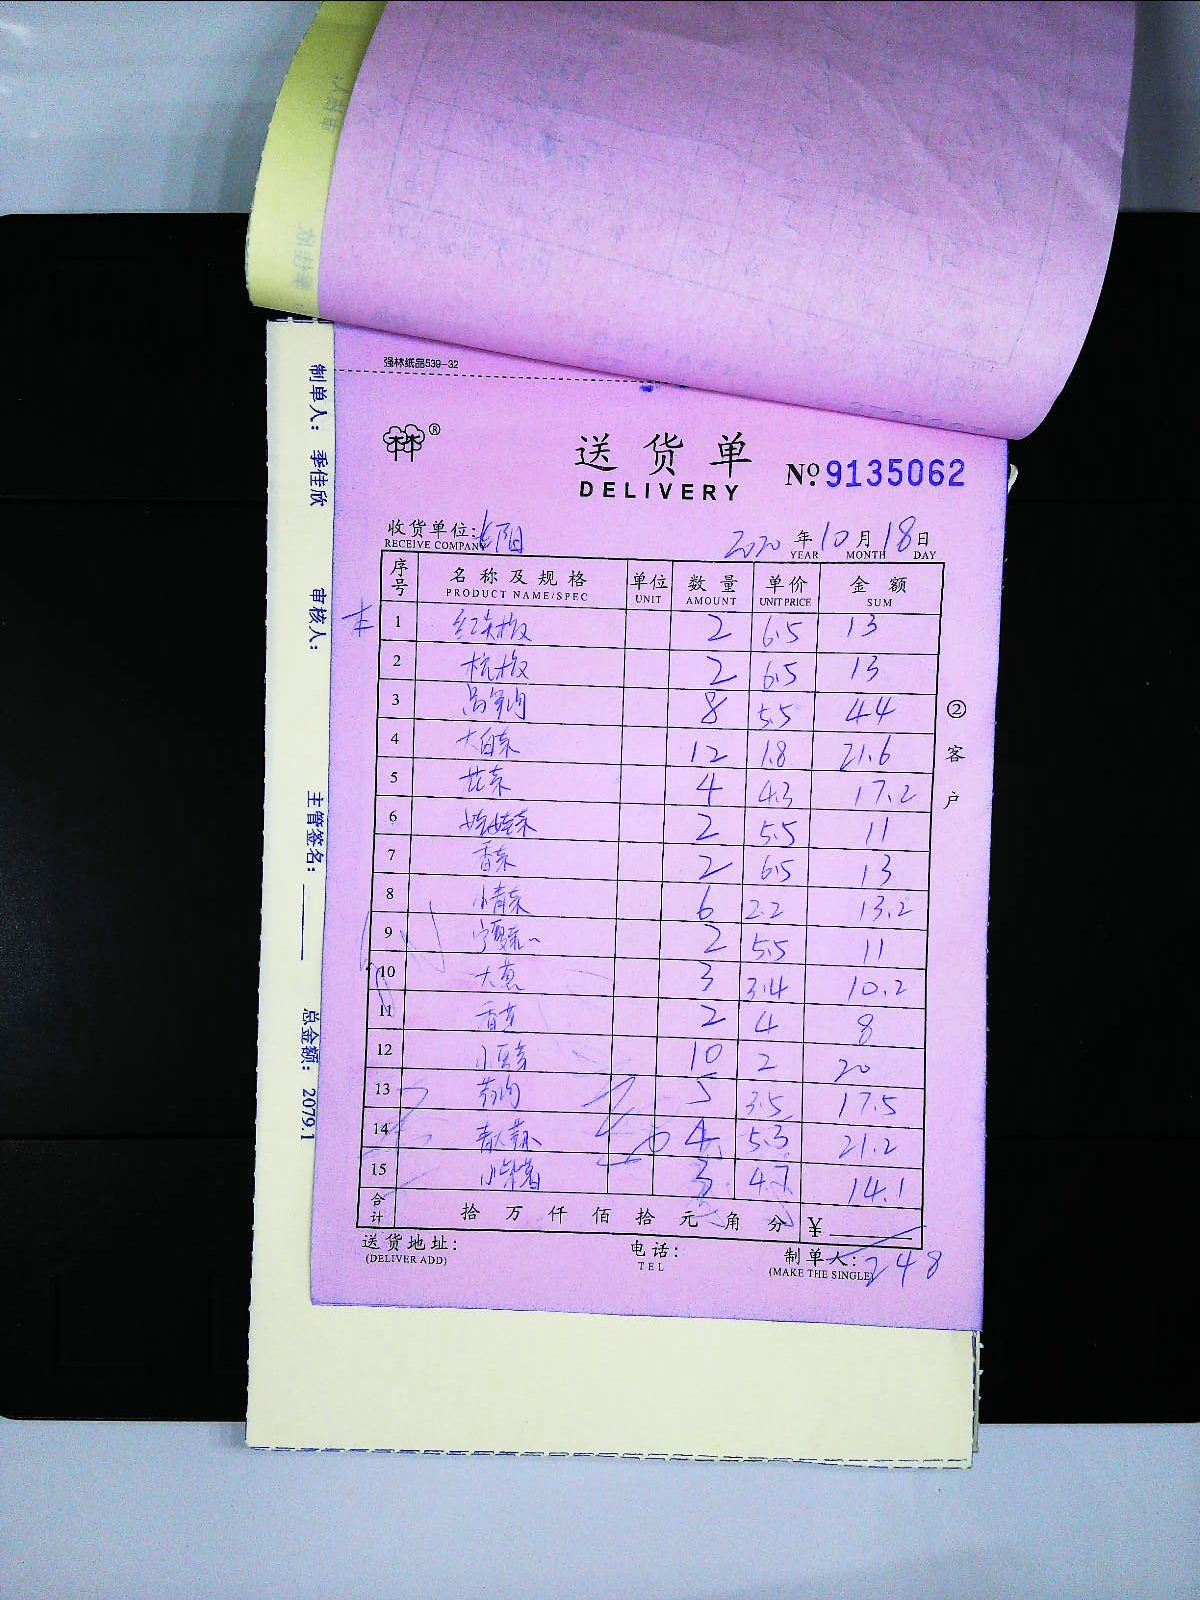 强林纸品539-32
林林®
送货单
DELIVERY
№ 9135062
收货单位:
RECEIVE COMPANY
2020 年 10 月 18 日
YEAR MONTH DAY
序号 名称及规格 单位 数量 单价 金额
PRODUCT NAME/SPEC UNIT AMOUNT UNIT PRICE SUM
1 红尖椒 2 6.5 13
2 杭椒 2 6.5 13
3 8 5.5 44
4 大白菜 12 1.8 21.6
5 花菜 4 4.3 17.2
6 娃娃菜 2 5.5 11
7 香菜 2 6.5 13
8 小青菜 6 2.2 13.2
9 2 5.5 11
10 大葱 3 3.4 10.2
11 香芹 2 4 8
12 小豆芽 10 2 20
13 5 3.5 17.5
14 4 5.3 21.2
15 3 4.7 14.1
合计 拾 万 仟 佰 拾 元 角 分 ¥
248
送货地址: 电话: 制单人:
(DELIVER ADD) TEL (MAKE THE SINGLE)
②客户
制单人: 季佳欣 审核人: 主管签名: 总金额: 2079.1